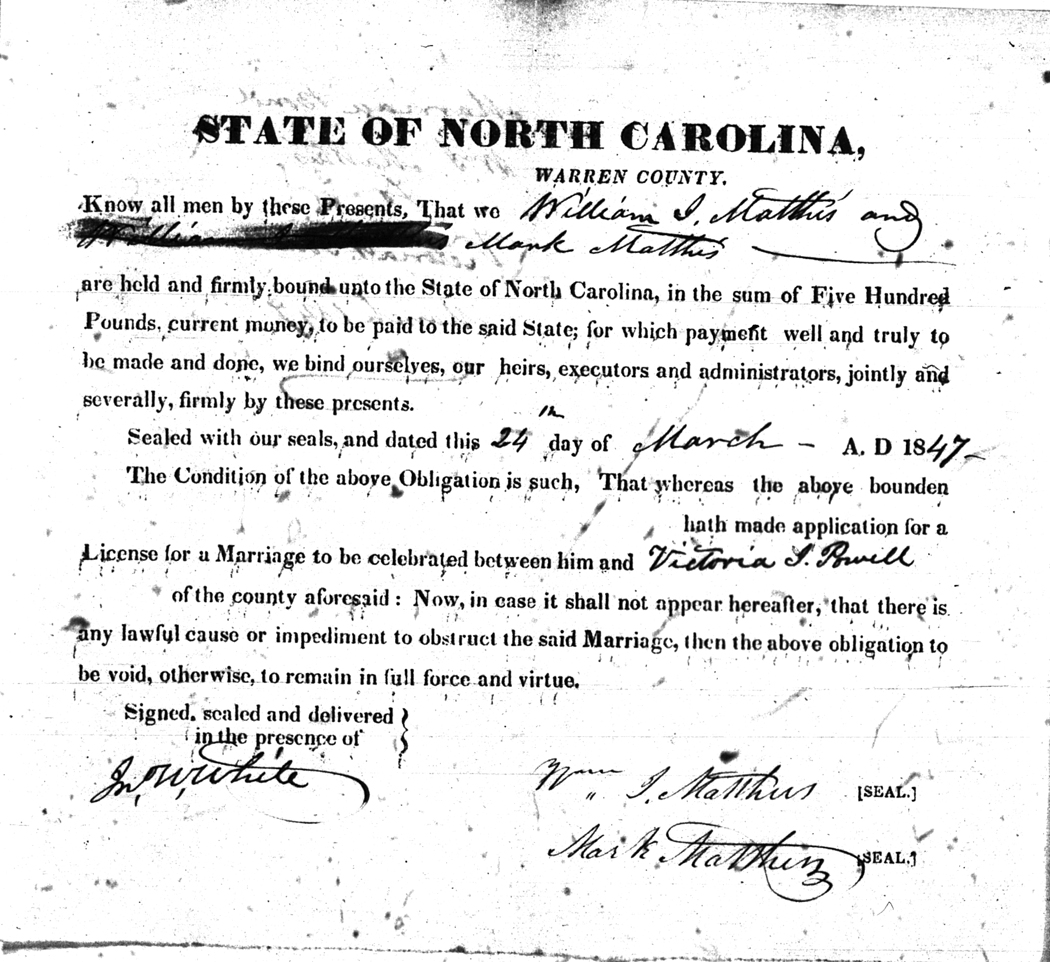 STATE OF NORTH CAROLINA,
WARREN COUNTY.
Know all men by these Presents, That we William I. Matthis and
Mark Matthis
are held and firmly bound unto the State of North Carolina, in the sum of Five Hundred
Pounds, current money, to be paid to the said State; for which payment well and truly to
be made and done, we bind ourselves, our heirs, executors and administrators, jointly and
severally, firmly by these presents.
Sealed with our seals, and dated this 24th day of March – A. D 1847–
The Condition of the above Obligation is such, That whereas the above bounden
hath made application for a
License for a Marriage to be celebrated between him and Victoria S. Powell
of the county aforesaid: Now, in case it shall not appear hereafter, that there is
any lawful cause or impediment to obstruct the said Marriage, then the above obligation to
be void, otherwise, to remain in full force and virtue.
Signed, sealed and delivered }
in the presence of
Jno W. White
Wm I. Matthis [SEAL.]
Mark Matthis [SEAL.]